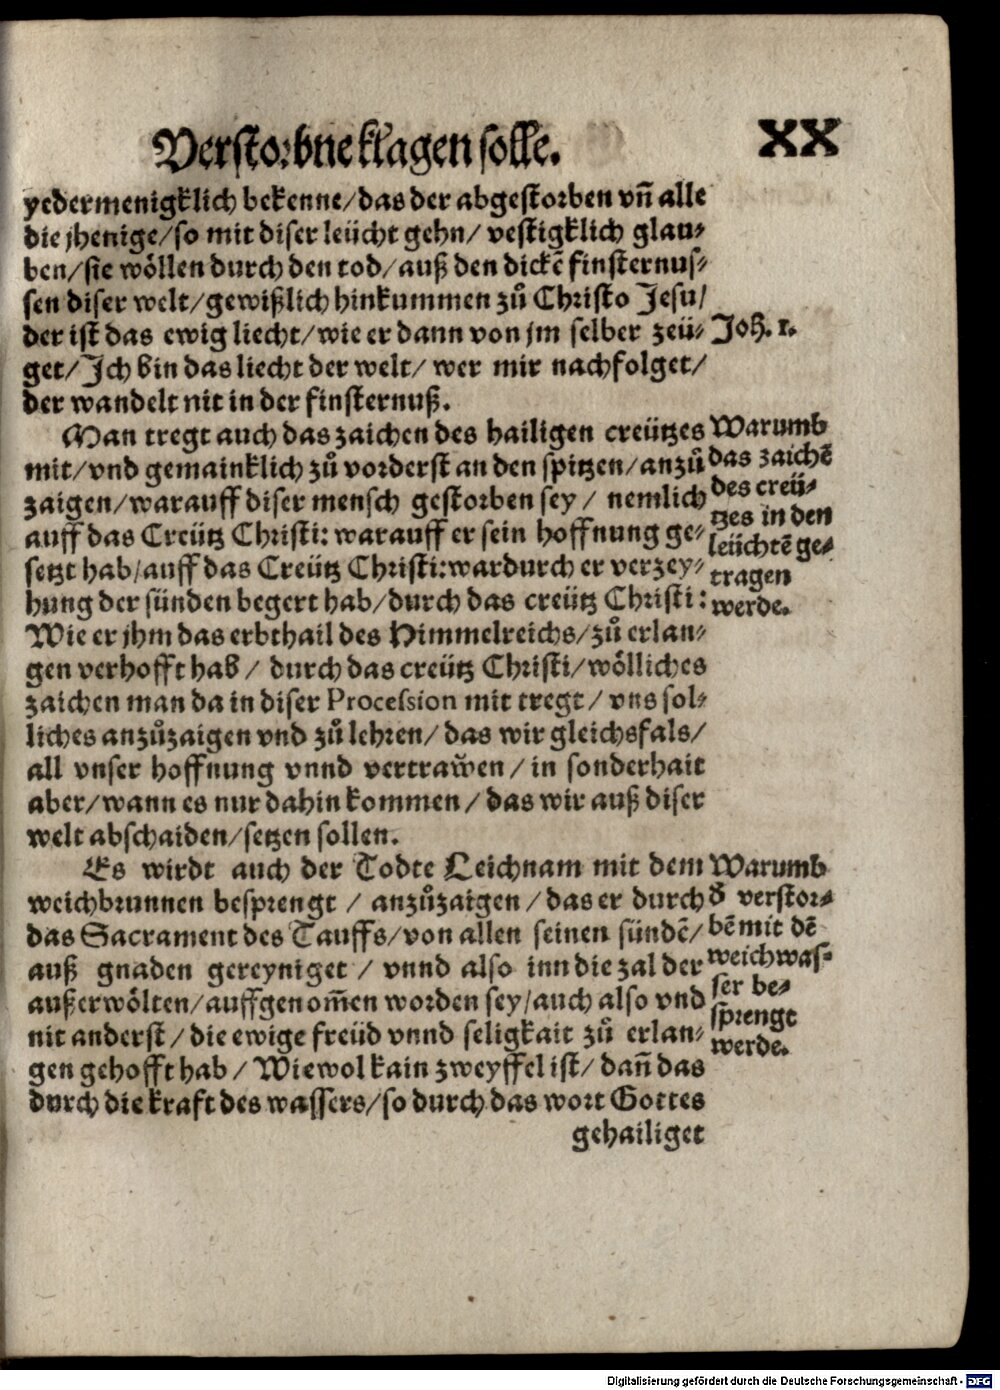 Verstorbne klagen solle.
XX
yedermenigklich bekenne/das der abgestorben vñ alle
die jhenige/so mit diser leücht gehn/ vestigklich glau-
ben/sie wöllen durch den tod/auß den dickẽ finsternus-
sen diser welt/gewißlich hinkummen zů Christo Jesu/
der ist das ewig liecht/wie er dann von jm selber zeü-
get/Ich bin das liecht der welt/ wer mir nachfolget/
der wandelt nit in der finsternuß.
Joh. 1.
Man tregt auch das zaichen des hailigen creützes
mit/vnd gemainklich zů vorderst an den spitzen/anzů
zaigen/warauff diser mensch gestorben sey/ nemlich
auff das Creütz Christi: warauff er sein hoffnung ge-
setzt hab/auff das Creütz Christi:wardurch er verzey-
hung der sünden begert hab/durch das creütz Christi:
Wie er jhm das erbthail des Himmelreichs/zů erlan-
gen verhofft hab/ durch das creütz Christi/wölliches
zaichen man da in diser Procession mit tregt/ vns sol-
liches anzůzaigen vnd zů lehren/ das wir gleichsfals/
all vnser hoffnung vnnd vertrawen/ in sonderhait
aber/wann es nur dahin kommen/ das wir auß diser
welt abschaiden/setzen sollen.
Warumb
das zaichẽ
des creü-
tzes in den
leüchtẽ ge-
tragen
werde.
Es wirdt auch der Todte Leichnam mit dem
weichbrunnen besprengt/ anzůzaigen/das er durch
das Sacrament des Tauffs/von allen seinen sündẽ/
auß gnaden gereyniget/ vnnd also inn die zal der
außerwölten/auffgenom̃en worden sey/auch also vnd
nit anderst/ die ewige freüd vnnd seligkait zů erlan-
gen gehofft hab/ Wiewol kain zweyffel ist/ dañ das
durch die kraft des wassers/so durch das wort Gottes
gehailiget
Warumb
d' verstor-
bẽ mit dẽ
weichwas-
ser be-
sprengt
werde.
Digitalisierung gefördert durch die Deutsche Forschungsgemeinschaft - DFG